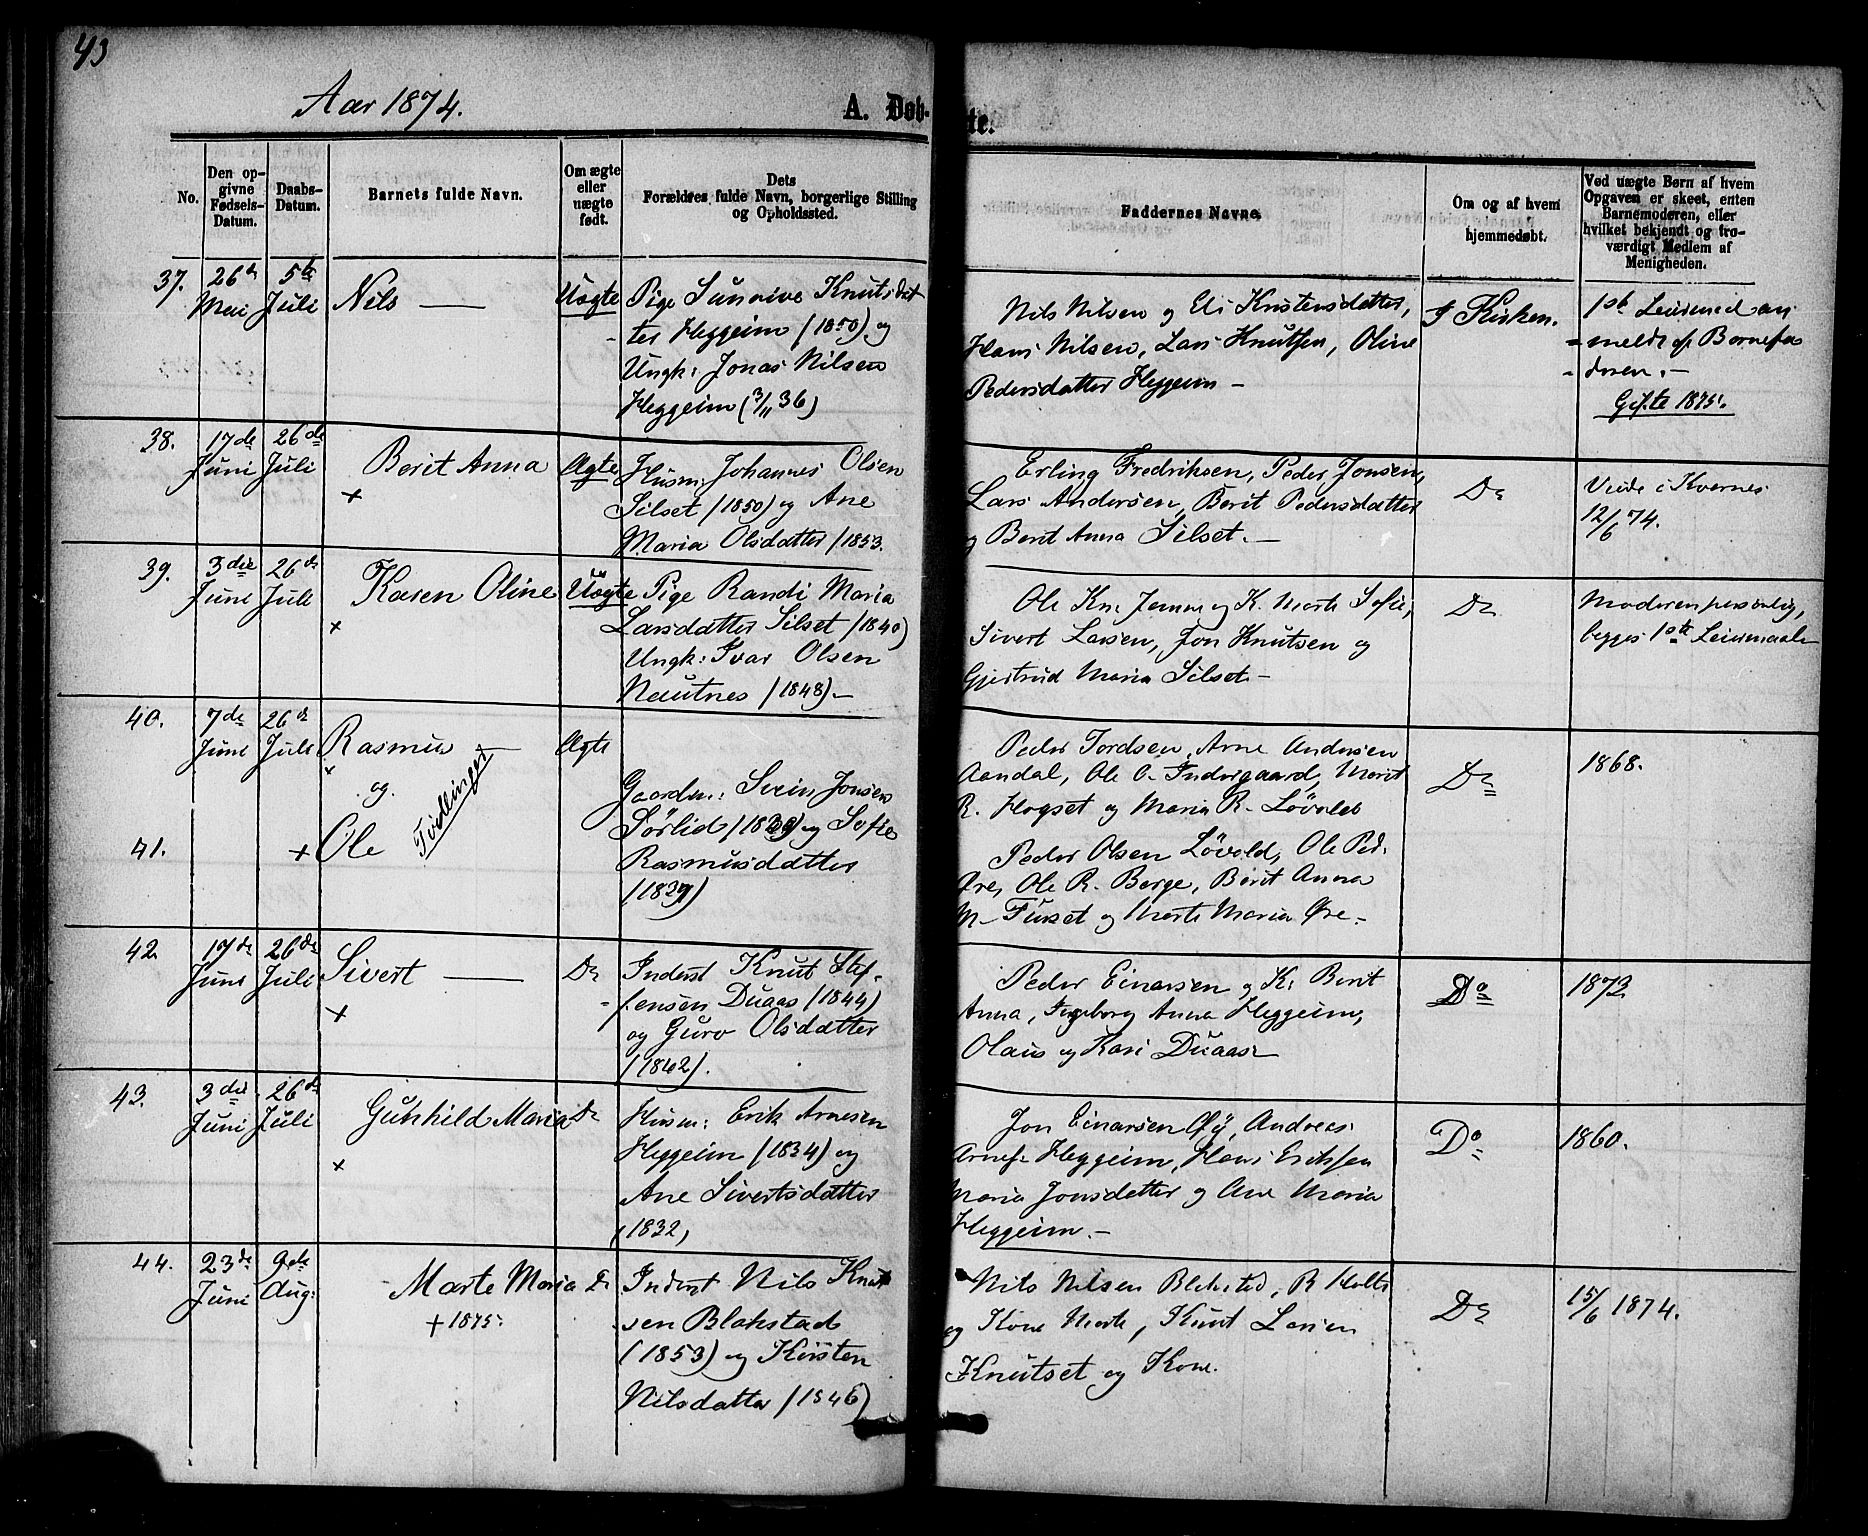 43
Aar 1874.
A. Døb-
te.
No.
Den op-
givne
Fødsels-
Datum.
Daabs-
Datum.
Barnets fulde Navn.
Om ægte
eller
uægte
født.
Dets
Forældres fulde Navn, borgerlige Stilling
og Opholdssted.
Faddernes Navne.
Om og af hvem
hjemmedøbt.
Ved uægte Børn af hvem
Opgaven er skeet, enten
Barnemoderen, eller
hvilket bekjendt og tro-
værdigt Medlem af
Menigheden.
37.
26de
Mai
5te
Juli
Nils —
Uægte
Pige Sunnive Knutsdat
ter Heggeim (1850) og
Ungk: Jonas Nilsen
Heggeim (3/11 36)
Nils Nilsen og Eli Knutsensdatter,
Hans Nilsen, Lars Knutsen, Oline
Pedersdatter Heggeim –
I Kirken.
1ste Leiermaal an
meldt af Barnefa
deren. –
Gifte 1875.
38.
17de
Juni
26de
Juli
Berit Anna
+
Ægte
Husm: Johannes Olsen
Silset (1850) og Ane
Maria Olsdatter (1853.
Erling Fredriksen, Peder Jonsen,
Lars Andersen, Berit Pedersdatter
og Berit Anna Silset. —
Do
Viede i Kvernes
12/6 74.
39.
3die
Juni
26de
Juli
Karen Oline
+
Uægte
Pige Randi Maria
Larsdatter Silset (1840)
Ungk: Ivar Olsen
Nautnes (1848) –
Ole Kn. Jemne og K. Marte Sofie,
Sivert Larsen, Jon Knutsen og
Gjertrud Maria Silset –
Do
Moderen personlig,
begges 1ste Leiermaal
40.
7de
Juni
26de
Juli
Rasmus —
+
og
Tvillinger
Ægte
41.
+ Ole
Gaardm: Svein Jonsen
Sørlid (1839) og Sofie
Rasmusdatter
(1839)
Peder Tordsen, Arne Andersen
Aandal, Ole O. Indergaard, Marit
R. Hogset og Maria R. Løvold
Peder Olsen Løvold, Ole Ped.
Øre, Ole R. Berge, Berit Anna
M. Furset og Marte Maria Øre –
Do
1868.
42.
17de
Juni
26de
Juli
Sivert —
+
Do
Inderst Knut Stef-
fensen Duaas (1844)
og Guro Olsdatter
(1842).
Peder Einarsen og K. Berit
Anna, Ingeborg Anna Heggeim,
Olaus og Kari Duaas
Do
1873
43.
3die
Juni
26de
Juli
Gunhild Maria
+
Do
Husm: Erik Arnesen
Heggeim (1834) og
Ane Sivertsdatter
(1832)
Jon Einarsen Øy, Andreas
Arnes. Heggeim, Hans Eriksen
Maria Jonsdatter og Ane Maria
Heggeim. –
Do
1860.
44.
23de
Juni
9de
Aug:
Marte Maria
+ 1875.
Do
Inderst Nils Knut
sen Blakstad
(1853) og Kirsten
Nilsdatter (1846)
Nils Nilsen Blakstad, R Holte
og Kone Marte, Knut Larsen
Knutset og Kone.
Do
15/6 1874.